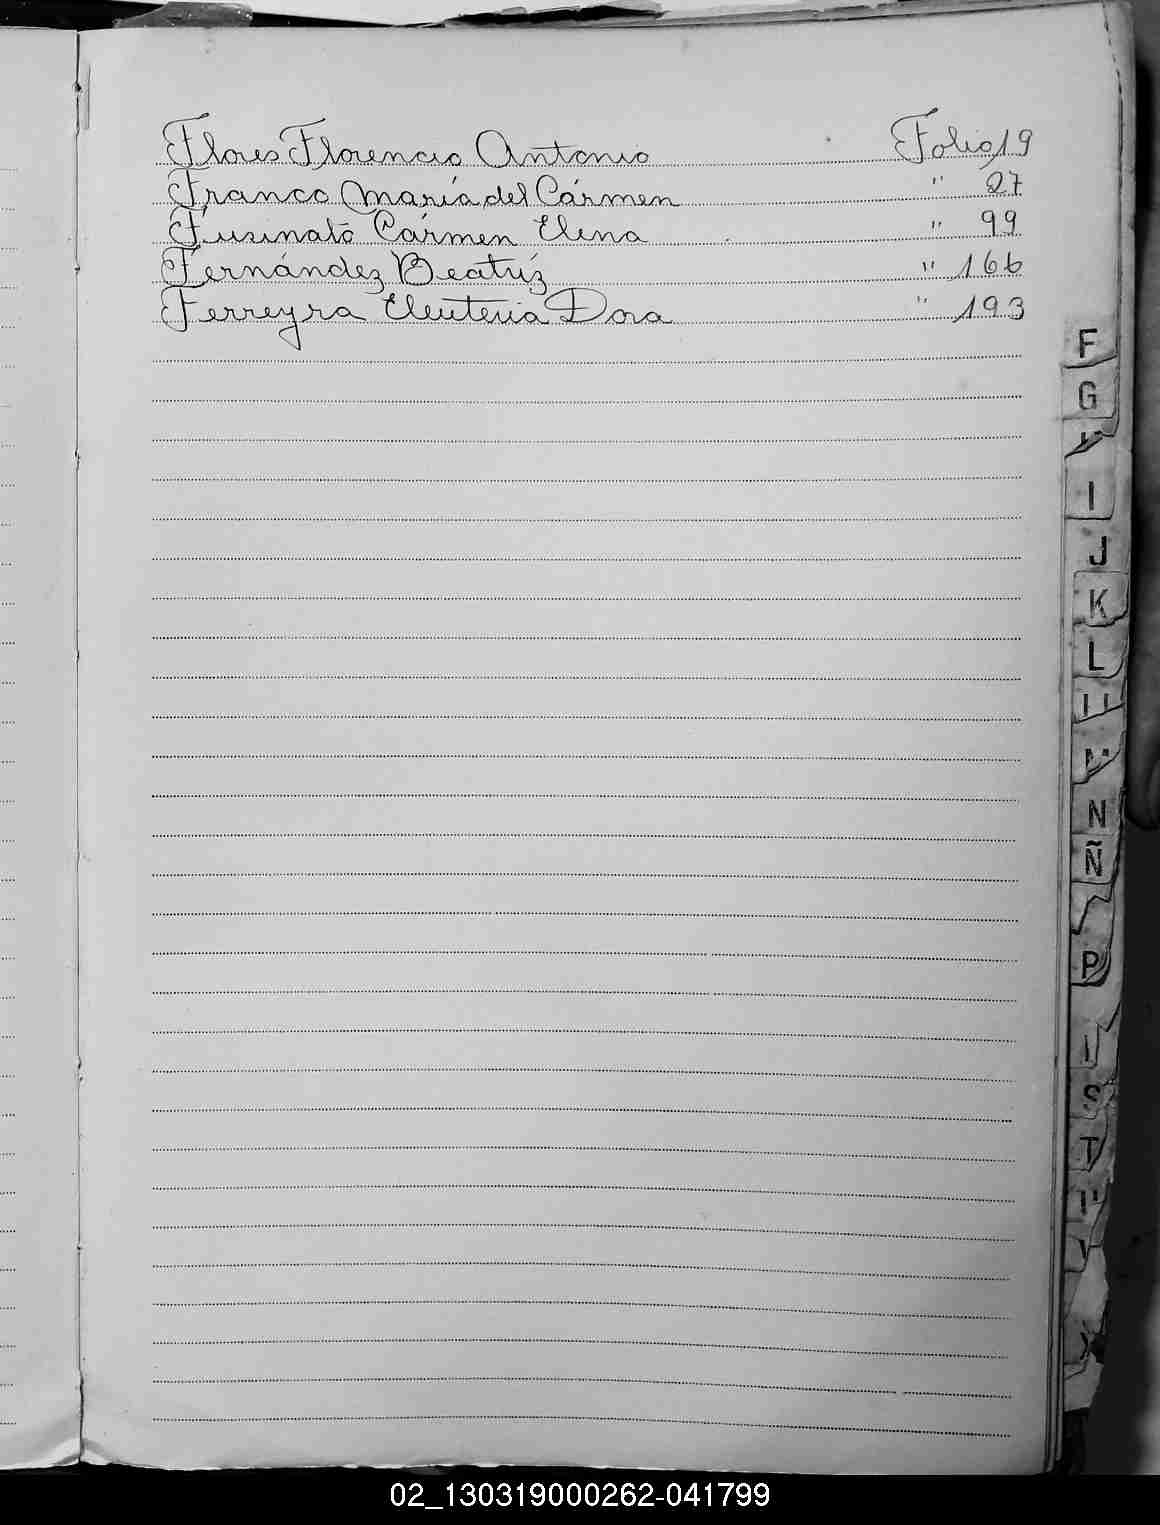 Flores Florencio Antonio Folio 19
Franco María del Cármen " 27
Fusinato Cármen Elena " 99
Fernández Beatríz " 166
Ferreyra Eleuteria Dora " 193
F
G
I
J
K
L
N
Ñ
P
S
T
X
02_130319000262-041799